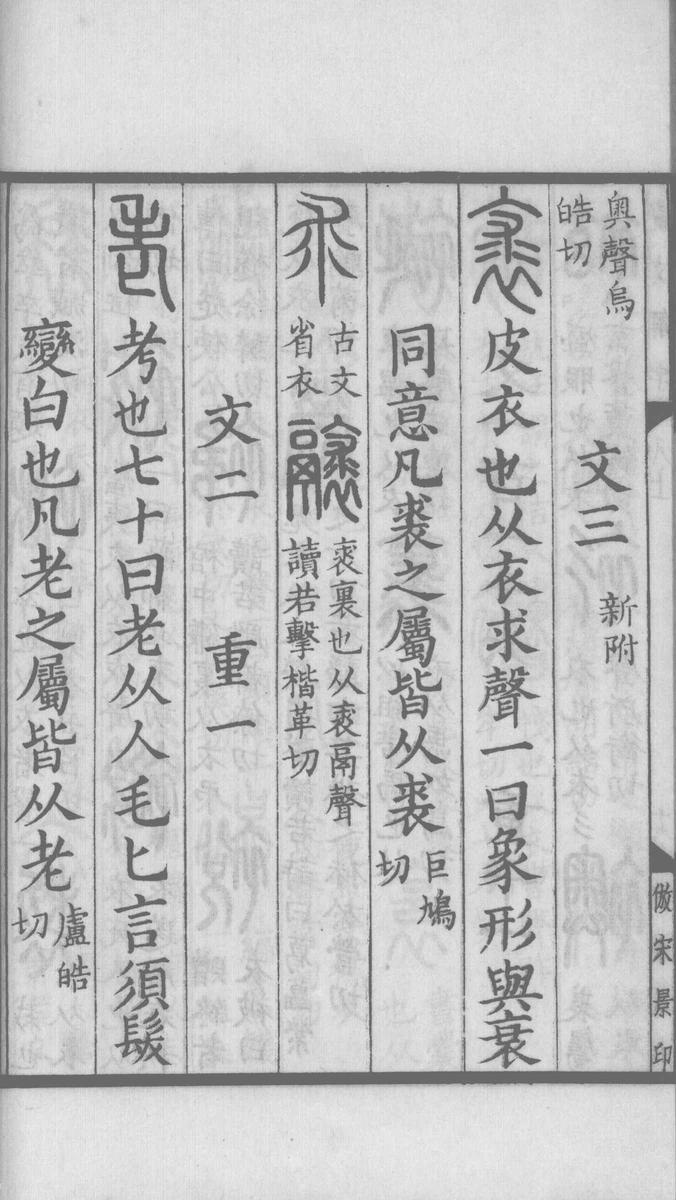 倣宋景印
奧聲烏皓切 文三 新附
裘 皮衣也从衣求聲一曰象形與衰
同意凡裘之屬皆从裘 巨鳩切
求 古文省衣 䙐 裘裏也从裘鬲聲讀若擊楷革切
文二 重一
老 考也七十曰老从人毛匕言須髮
變白也凡老之屬皆从老 盧皓切